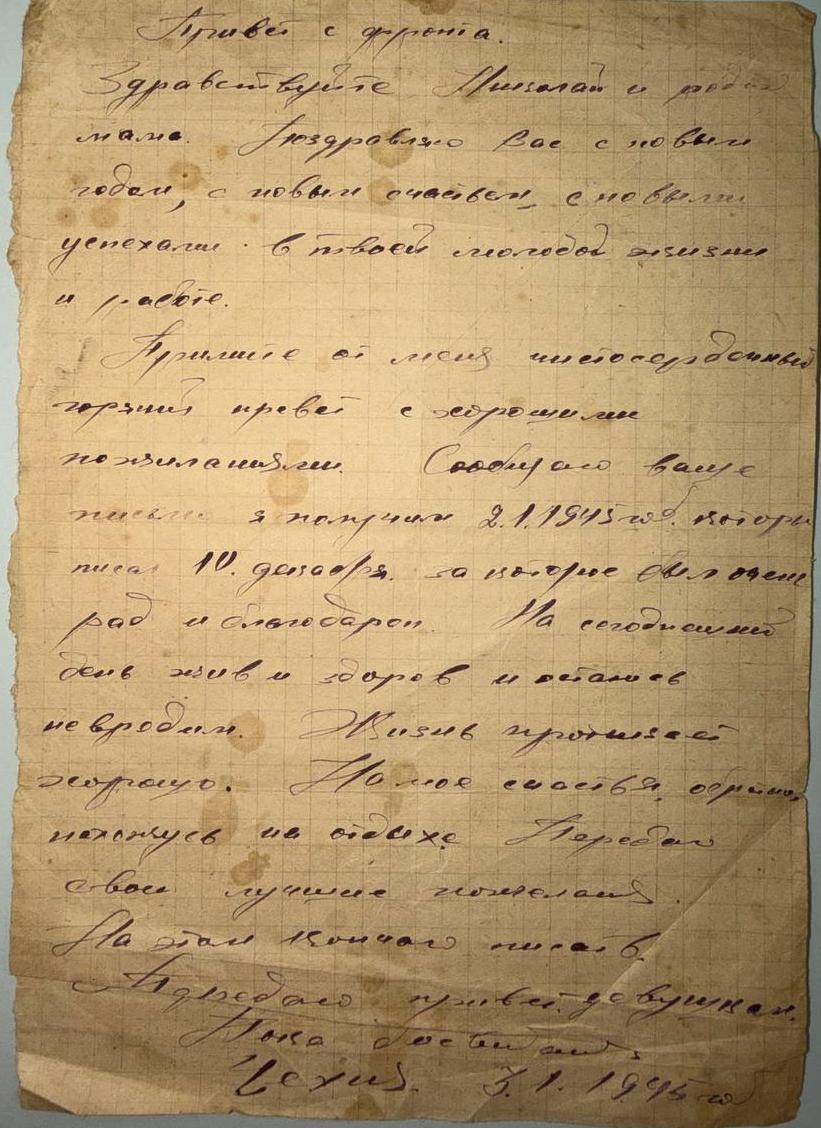 Привет с фронта.
Здравствуйте Николай и
мама. Поздравляю Вас с новым
годом, с новым счастьем, с новыми
успехами в твоей молодой жизни
и работе.
Примите от меня чистосердечный
горячий превет с хорошими
пожиланиями. Сообщаю ваше
письмо я получил 2.1.1945 год. которы
писал 10. декабря. за которое был очень
рад и благодарен. На сегодняшний
день жив и здоров и остаюсь
невродим. Жизнь протикает
хорошо. На мое счастья,
нахожусь на отдыхе Передаю
свои лучшие пожелания.
На этом кончаю писать.
Передаю привет девушкам.
Пока досвидания
Чехия. 3.1.1945 го